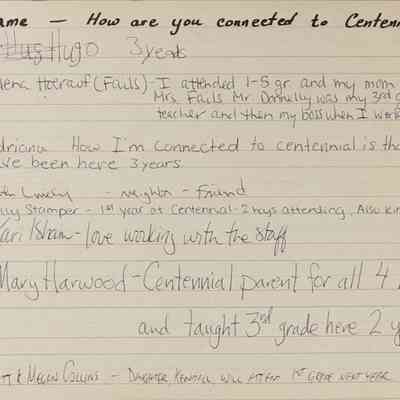 ame — How are you connected to Centenn
Hugo 3 years
lena Hoerauf (Fails) - I attended 1-5 gr. and my mom
Mrs. Fails Mr. Donnelly was my 3rd g
teacher and then my boss when I work
driana How I'm connected to centennial is tha
ve been here 3 years.
- neighbor - Friend
uy Stamper - 1st year at Centennial - 2 boys attending, Also kin
Kari Isham - love working with the staff
Mary Harwood - Centennial parent for all 4
and taught 3rd grade here 2 y
tt & Megan Collins - Daughter, Kendall, will attend 1st grade next year